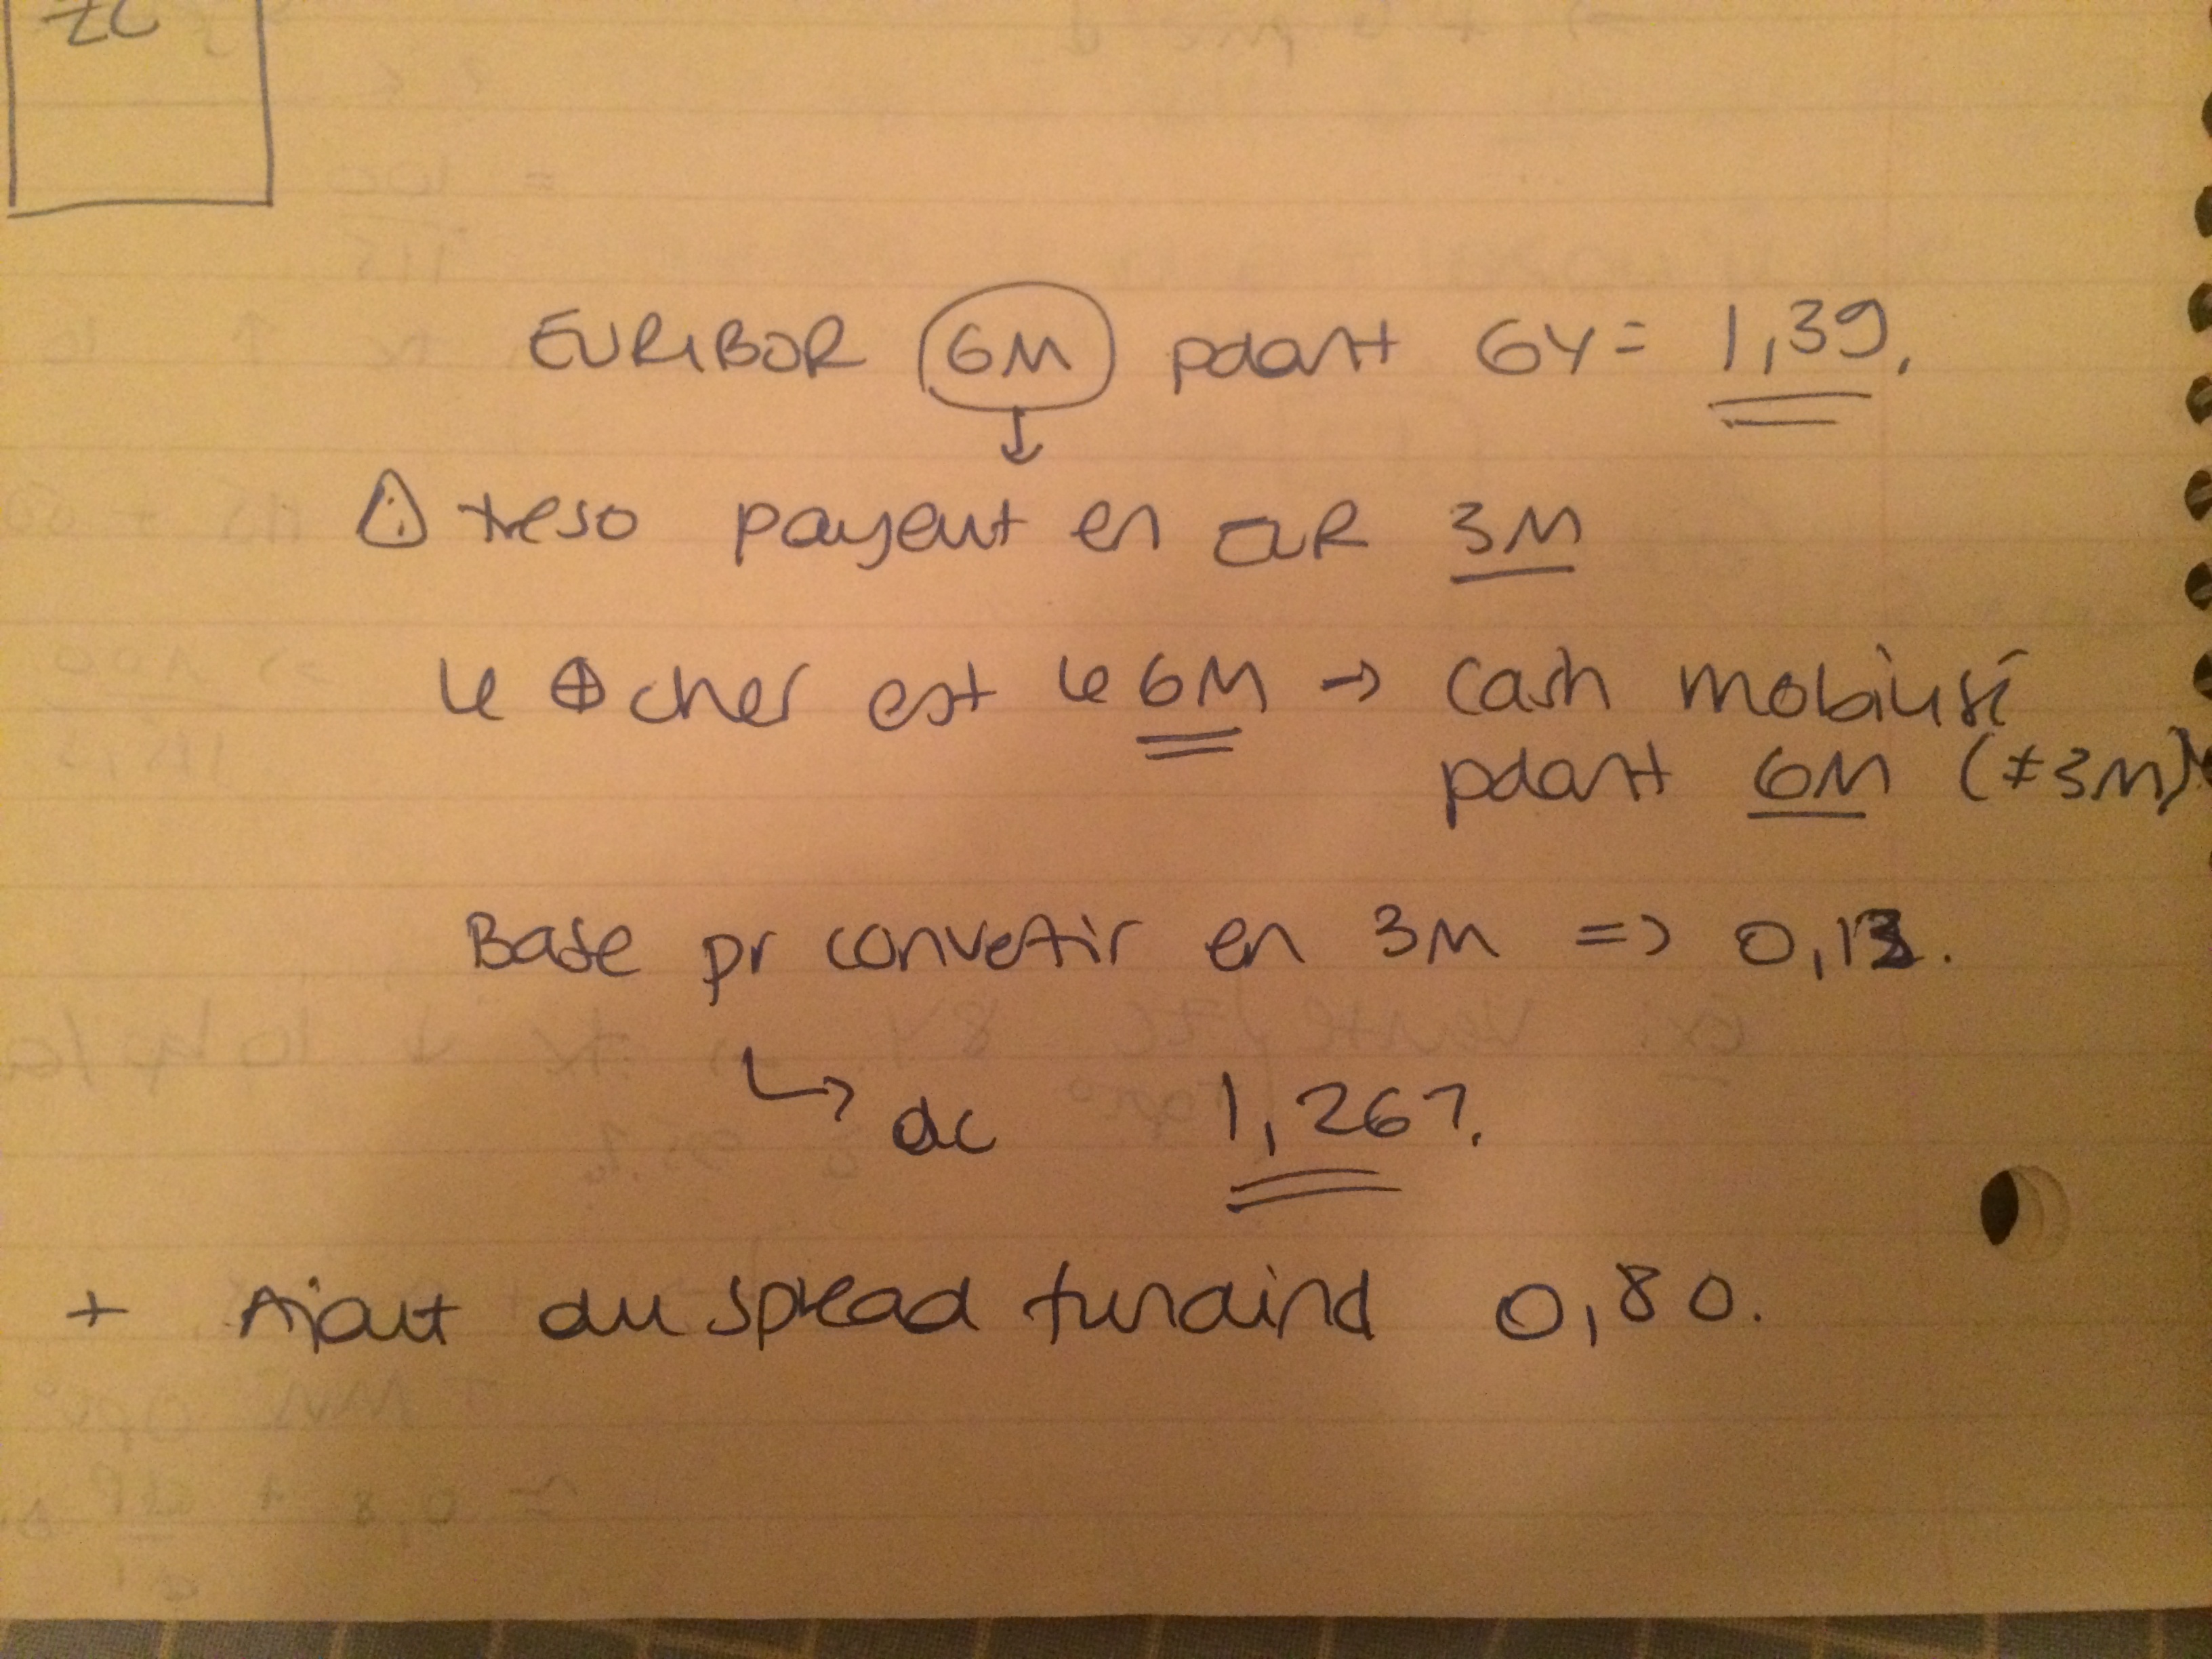 ZC
EURIBOR 6M pdant 6Y = 1,39.
treso payent en EUR 3M
le + cher est le 6M → cash mobilisé
pdant 6M (≠3M)
Base pr convetir en 3M => 0,13.
↳ dc 1,267.
+ Ajout du spread funding 0,80.